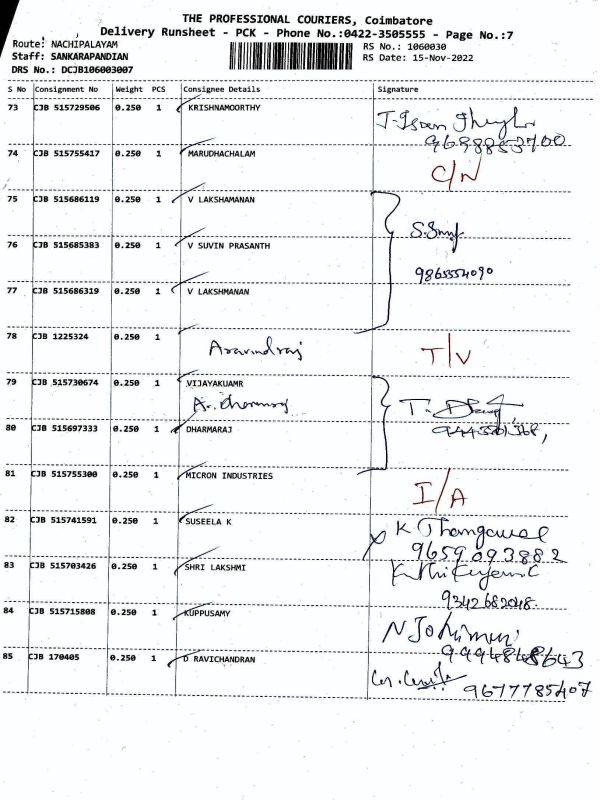 THE PROFESSIONAL COURIERS, Coimbatore
Delivery Runsheet - PCK - Phone No.:0422-3505555 - Page No.:7
Route: NACHIPALAYAM RS No.: 1060030
Staff: SANKARAPANDIAN RS Date: 15-Nov-2022
DRS No.: DCJB106003007
S No Consignment No Weight PCS Consignee Details Signature
73 CJB 515729506 0.250 1 KRISHNAMOORTHY
74 CJB 515755417 0.250 1 MARUDHACHALAM C/N
75 CJB 515686119 0.250 1 V LAKSHAMANAN
76 CJB 515685383 0.250 1 V SUVIN PRASANTH
9865554090
77 CJB 515686319 0.250 1 V LAKSHMANAN
78 CJB 1225324 0.250 1 Aravindraj T/V
79 CJB 515730674 0.250 1 VIJAYAKUAMR
80 CJB 515697333 0.250 1 DHARMARAJ
81 CJB 515755300 0.250 1 MICRON INDUSTRIES I/A
82 CJB 515741591 0.250 1 SUSEELA K K Thangavel
9659093882
83 CJB 515703426 0.250 1 SHRI LAKSHMI
9342682048
84 CJB 515715808 0.250 1 KUPPUSAMY
85 CJB 170405 0.250 1 D RAVICHANDRAN
9677785407